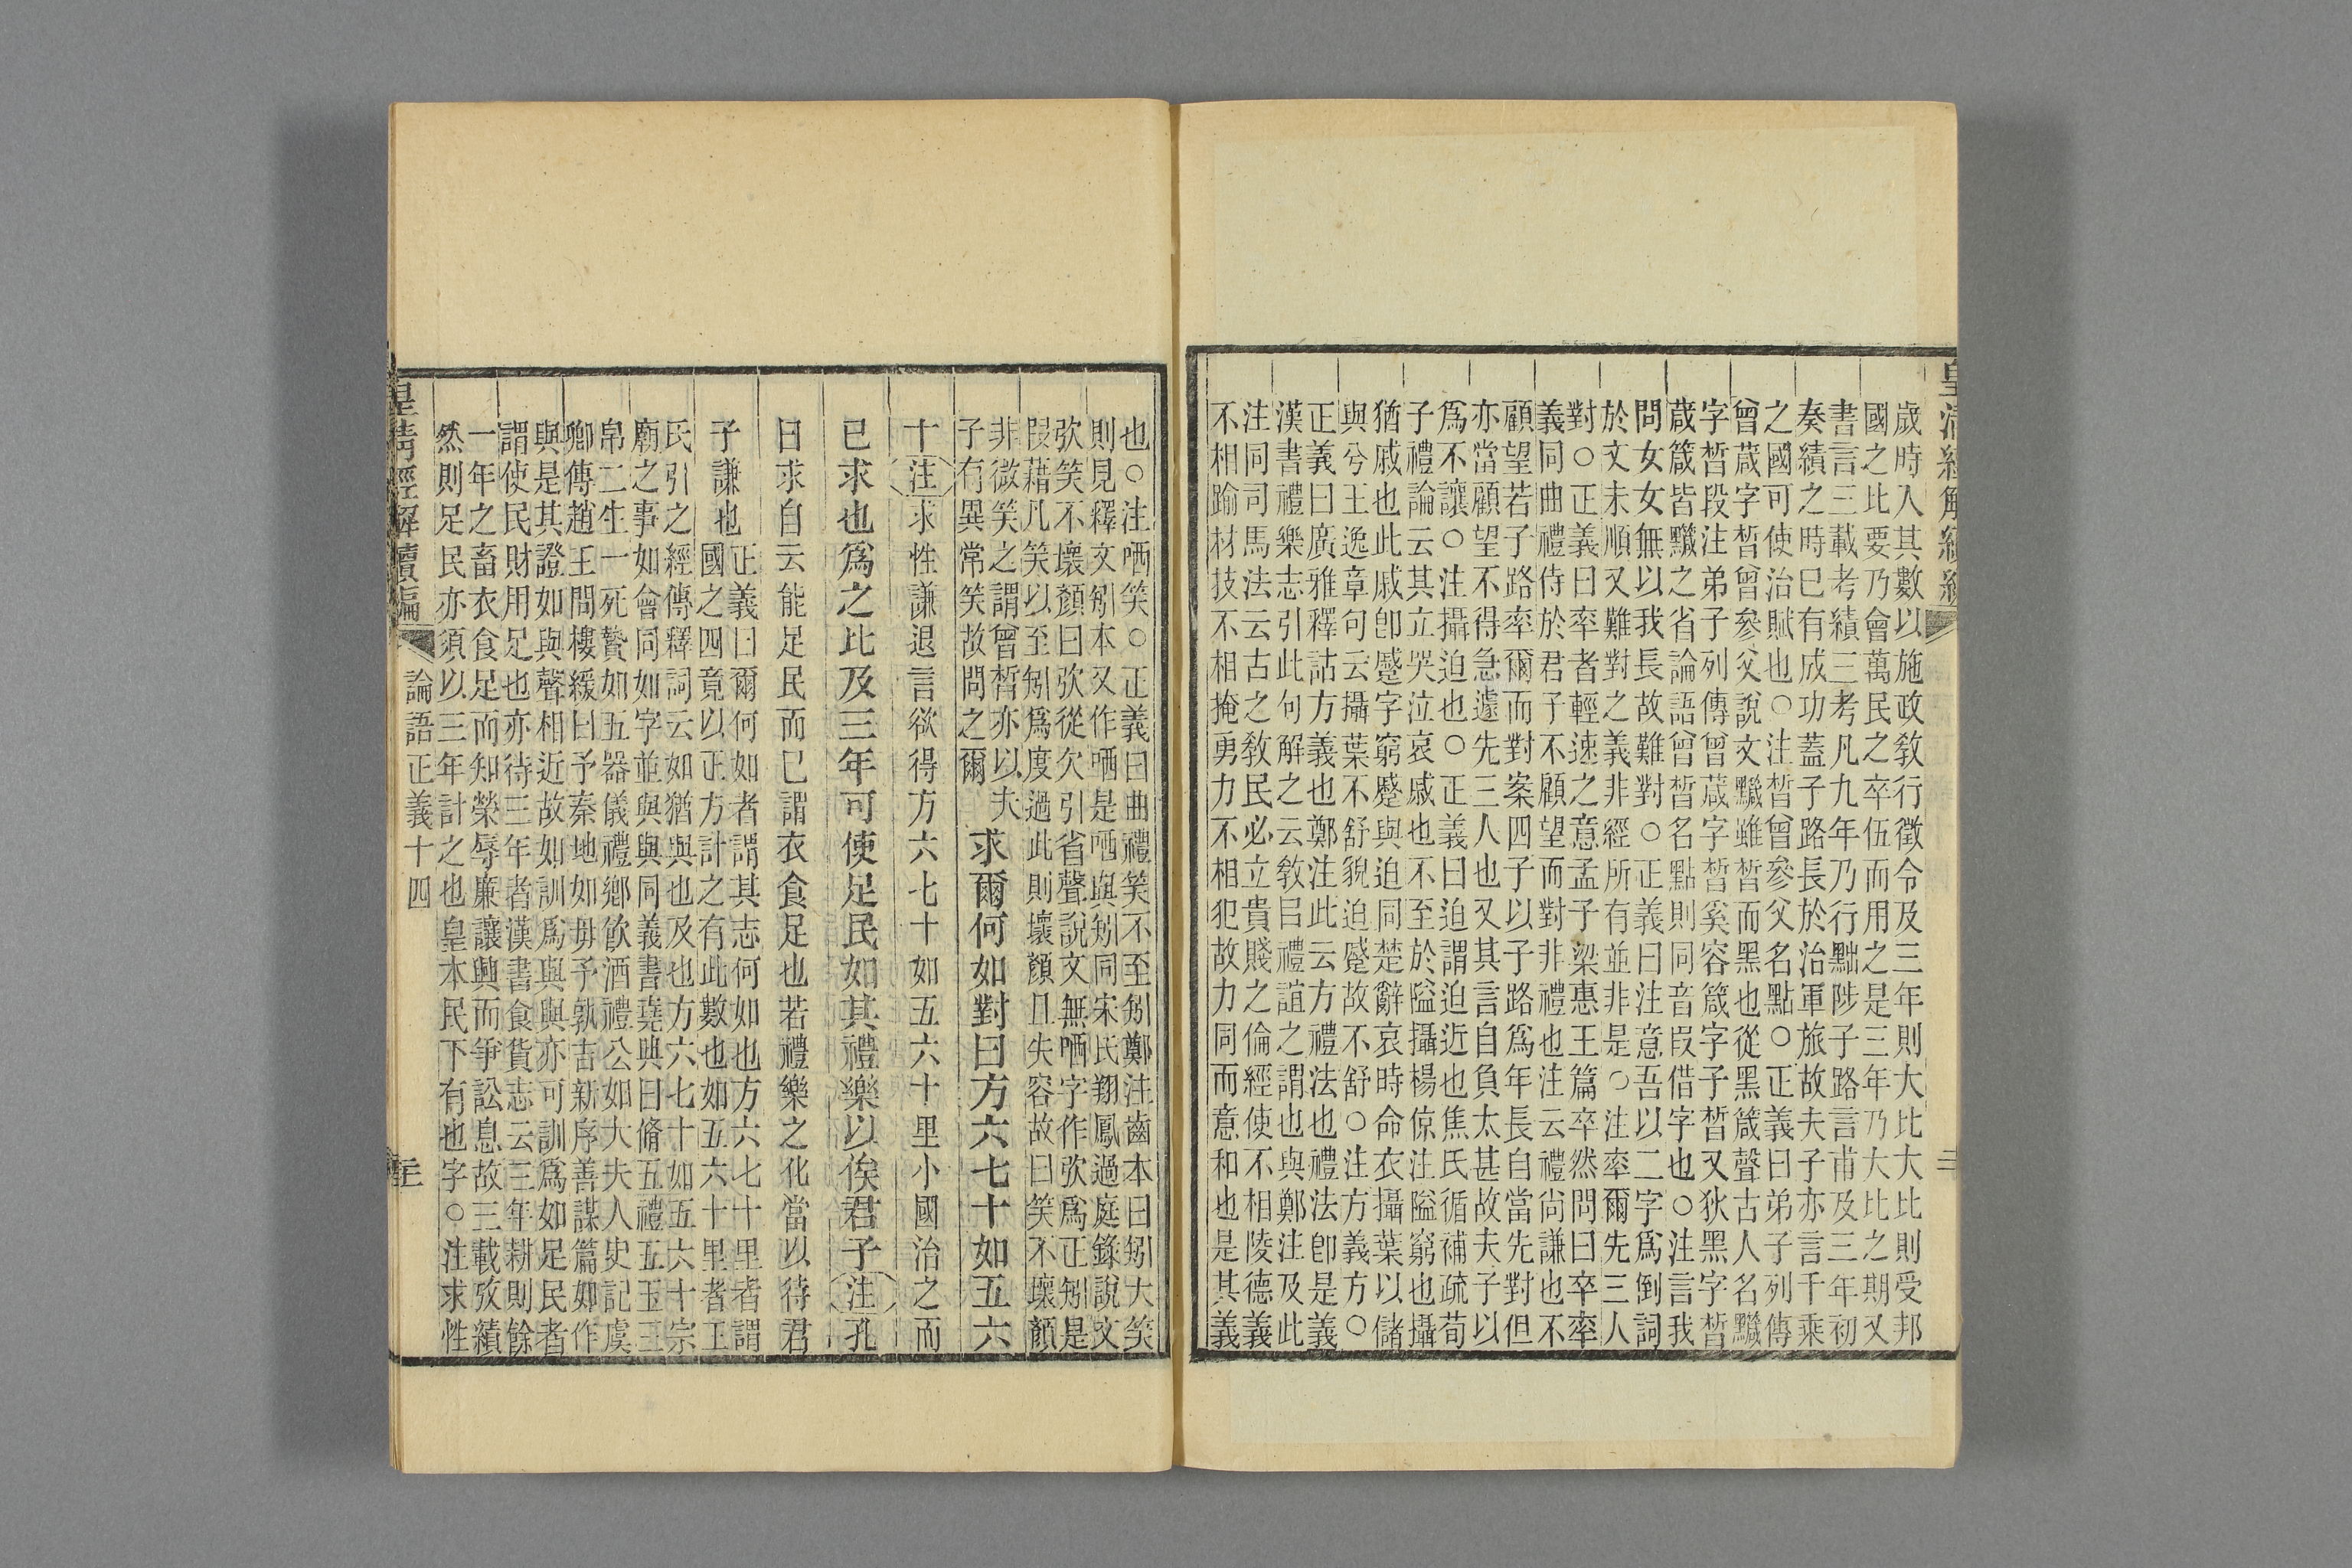 皇清經解續編
歲時入其數以施政敎行徵令及三年則大比大比則受邦
國之比要乃會萬民之卒伍而用之是三年乃大比之期又
書言三載考績三考凡九年乃行黜陟子路言甫及三年初
奏績之時已有成功蓋子路長於治軍旅故夫子亦言千乘
之國可使治賦也○注皙曾參父名點○正義曰弟子列傳
曾蒧字皙曾參父說文黵雖皙而黑也從黑箴聲古人名黵
字皙段注弟子列傳曾蒧字皙奚容箴字子皙又狄黑字皙
蒧箴皆黵之省論語曾皙名點則同音叚借字也○注言我
問女女無以我長故難對○正義曰注意吾以二字爲倒詞
於文未順又難對之義非經所有並非是○注率爾先三人
對○正義曰率者輕速之意孟子梁惠王篇卒然問曰卒率
義同曲禮侍於君子不顧望而對非禮也注云禮尙謙也不
顧望若子路率爾而對案四子以子路爲年長自當先對但
亦當顧望不得急遽先三人也又其言自負太甚故夫子以
爲不讓○注攝迫也○正義曰迫謂迫近也焦氏循補疏荀
子禮論云其立哭泣哀戚也不至於隘攝楊倞注隘窮也攝
猶戚也此戚卽蹙字窮蹙與迫同楚辭哀時命衣攝葉以儲
與兮王逸章句云攝葉不舒貌迫蹙故不舒○注方義方○
正義曰廣雅釋詁方義也鄭注此云方禮法也禮法卽是義
漢書禮樂志引此句解之云敎㠯禮誼之謂也與鄭注及此
注同司馬法云古之敎民必立貴賤之倫經使不相陵德義
不相踰材技不相掩勇力不相犯故力同而意和也是其義
也○注哂笑○正義曰曲禮笑不至矧鄭注齒本曰矧大笑
則見釋文矧本又作哂是哂與矧同宋氏翔鳳過庭錄說文
弞笑不壞顏曰弞從欠引省聲說文無哂字作弞爲正矧是
叚藉凡笑以至矧爲度過此則壞顏且失容故曰笑不壞顏
非微笑之謂曾皙亦以夫
子有異常笑故問之爾
求爾何如對曰方六七十如五六
十注求性謙退言欲得方六七十如五六十里小國治之而
已求也爲之比及三年可使足民如其禮樂以俟君子注孔
曰求自云能足民而已謂衣食足也若禮樂之化當以待君
子謙也
正義曰爾何如者謂其志何如也方六七十里者謂
國之四竟以正方計之有此數也如五六十里者王
氏引之經傳釋詞云如猶與也及也方六七十如五六十宗
廟之事如會同如字並與與同義書堯典曰脩五禮五玉三
帛二生一死贄如五器儀禮鄉飮酒禮公如大夫入史記虞
卿傳趙王問樓緩曰予秦地如毋予孰吉新序善謀篇如作
與是其證如與聲相近故如訓爲與與亦可訓爲如足民者
謂使民財用足也亦待三年者漢書食貨志云三年耕則餘
一年之畜衣食足而知榮辱廉讓興而爭訟息故三載攷績
然則足民亦須以三年計之也皇本民下有也字○注求性
皇清經解續編
論語正義十四